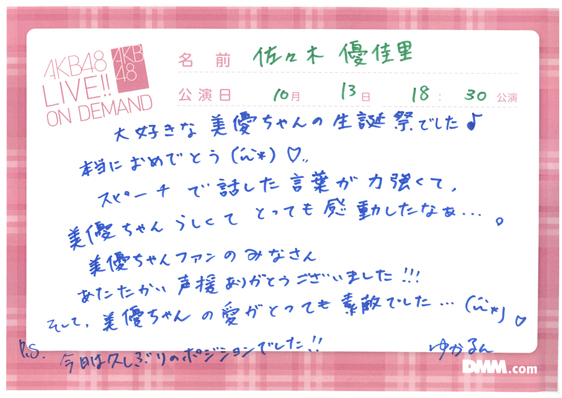 AKB48
LIVE!!
ON DEMAND
AKB
48
名前 佐々木 優佳里
公演日 10月 13日 18:30公演
大好きな美優ちゃんの生誕祭でした♪
本当におめでとう(^ω^*)♡..
スピーチで話した言葉が力強くて,
美優ちゃんらしくてとっても感動したなぁ…。
美優ちゃんファンのみなさん
あたたかい声援ありがとうございました!!!
そして,美優ちゃんの愛がとっても素敵でした…(^ω^*)♡
P.S. 今日は久しぶりのポジションでした!!
ゆかるん
DMM.com